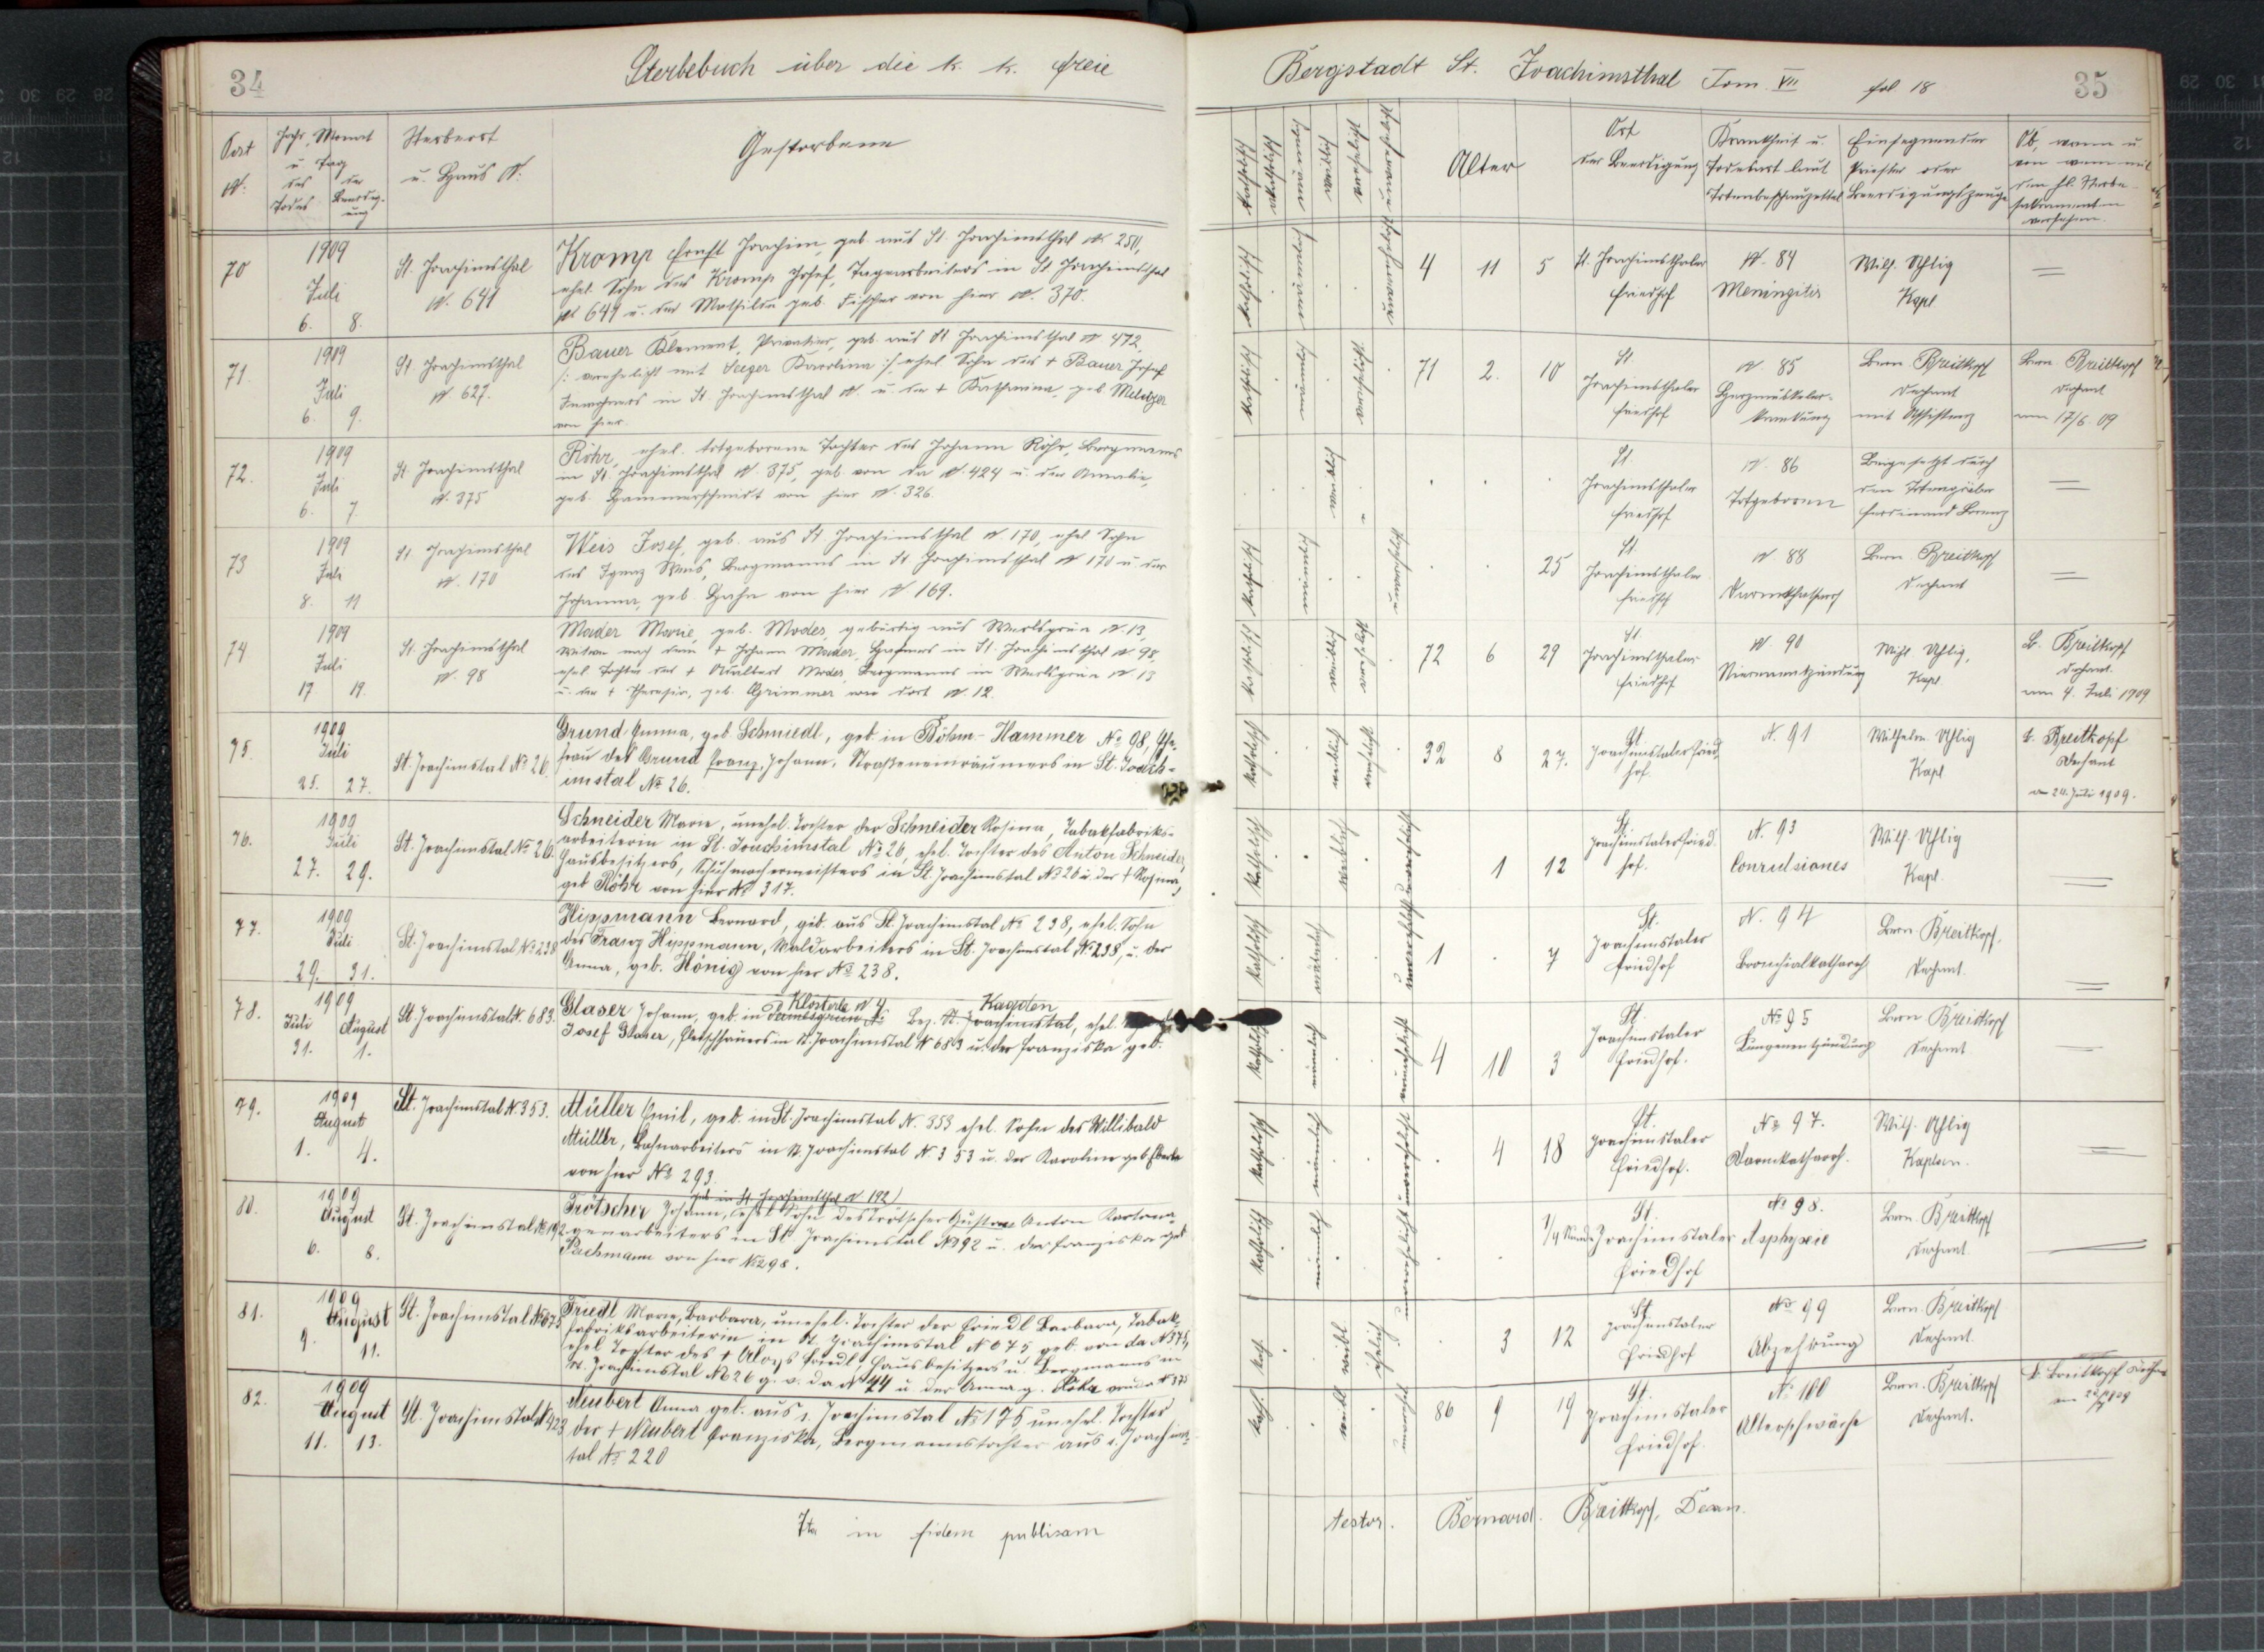 34
Sterbebuch über die k. k. freie
Bergstadt St. Joachimsthal Tom. VII fol 18
35
Post N:
Jahr, Monat u. Tag
des Todes
der Beerdigung
Sterbeort u. Haus N.
Gestorbene
katholisch
männlich
weiblich
verehelicht
unverehelicht
Alter
Ort der Beerdigung
Krankheit u. Todesart laut Totenbeschauzettel
Einsegnender Priester oder Beerdigungszeuge
Ob, wann u. von wem mit den hl. Sterbesakramenten versehen.
70
1909
Juli
6. 8.
St. Joachimsthal
N. 641
Kromp Ernst Joachim, geb. aus St. Joachimsthal N. 250,
ehel. Sohn des Kromp Josef, Tagarbeiters in St. Joachimsthal
N. 649 u. der Mathilde geb. Fischer von hier N. 370.
katholisch
männlich
unverehelicht
4 11 5
St. Joachimsthaler
Friedhof
N. 84
Meningitis
Wilh. Uhlig
Kapl
71
1909
Juli
6. 9.
St Joachimsthal
N. 627.
Bauer Klement, Privatier, geb. aus St. Joachimsthal N. 472,
/: verehelicht mit Seeger Karolina :/ ehel. Sohn des + Bauer Josef
Inwohners in St. Joachimsthal N. u. der + Katharina, geb. Meltzer
von hier.
katholisch
männlich
verehelicht
71 2. 10
St.
Joachimsthaler
Friedhof
N. 85
Herzmuskeler-
krankung
Bern Breitkopf
Dechant
mit Assistenz
Bern Breitkopf
Dechant
am 17/6. 09
72.
1909
Juli
6. 7.
St. Joachimsthal
N. 375
Röhr, ehel. totgeborene Tochter des Johann Röhr, Bergmanns
in St. Joachimsthal N. 375, geb. von da N. 424 u. der Amalie,
geb. Hammerschmidt von hier N. 326.
weiblich
St
Joachimsthaler
Friedhof
N. 86
Totgeboren
Beigesetzt durch
den Totengräber
Ferdinand Lorenz
73
1909
Juli
8. 11
St. Joachimsthal
N. 170
Weis Josef, geb. aus St Joachimsthal N 170, ehel Sohn
des Ignaz Weis, Bergmanns in St Joachimsthal N 170 u. der
Johanna, geb. Hahn von hier N 169.
katholisch
männlich
unverehelicht
25
St.
Joachimsthaler
Friedhof
N. 88
Darmkatharrh
Bern. Breitkopf
Dechant
74
1909
Juli
17 19.
St. Joachimsthal
N. 98
Mader Marie, geb. Modes, gebürtig aus Werlsgrün N. 13,
Witwe nach dem + Johann Mader, Hafners in St. Joachimsthal N 98,
ehel. Tochter des + Modes, Bergmanns in Werlsgrün N 13
u. der + Theresia, geb. Grimmer von dort N 12.
katholisch
weiblich
verehelicht
72 6 29
St.
Joachimsthaler
Friedhof
N. 90
Nierenentzündung
Wilh. Uhlig,
Kapl
B. Breitkopf
Dechant.
am 4. Juli 1909
75.
1909
Juli
25. 27.
St. Joachimstal No 26.
Grund Emma, geb. Schmiedl, geb. in Böhm.-Hammer No 98, Ehe-
frau des Grund Franz, Johann, Straßeneinräumers in St. Joach-
imstal No 26.
katholisch
weiblich
verehelicht
32 8 27.
St.
Joachimstaler Fried-
hof.
N. 91
Wilhelm Uhlig
Kapl
B. Breitkopf
Dechant
am 24. Juli 1909.
76.
1909
Juli
27. 29.
St. Joachimstal No 26.
Schneider Marie, unehel. Tochter der Schneider Rosina, Tabakfabriks-
arbeiterin in St. Joachimstal No 26, ehel. Tochter des Anton Schneider,
Hausbesitzers, Schuhmachermeisters in St. Joachimstal No 26 u. der + Rosina,
geb Röhr von hier No 317.
katholisch
weiblich
unverehelicht
1 12
St
Joachimstaler Fried-
hof.
N. 93
Convulsiones
Wilh. Uhlig
Kapl.
77.
1909
Juli
29. 31.
St. Joachimstal No 238
Hippmann Bernard, geb. aus St. Joachimstal No 238, ehel. Sohn
des Franz Hippmann, Waldarbeiters in St. Joachimstal No 238, u. der
Anna, geb. König von hier No 238.
katholisch
männlich
unverehelicht
1 7
St.
Joachimstaler
Friedhof
N. 94
Bronchialkatharrh
Bern. Breitkopf,
Dechant.
78.
1909
Juli August
31. 1.
St. Joachimstal N. 683.
Klösterle N 4 Kaaden
Glaser Johann, geb. in Bez. St. Joachimstal, ehel.
Josef Glaser, in St. Joachimstal N 683 u. der Franziska geb.
katholisch
männlich
unverehelicht
4 10 3
St.
Joachimstaler
Friedhof.
No 95
Lungenentzündung
Bern Breitkopf
Dechant
79.
1909
August
1. 4.
St. Joachimstal N. 353.
Müller Emil, geb. in St. Joachimstal N. 353 ehel. Sohn des Willibald
Müller, Bahnarbeiters in St. Joachimstal N 353 u. der Karoline geb. Eberle
von hier No 293.
katholisch
männlich
unverehelicht
4 18
St.
Joachimstaler
Friedhof.
No 97.
Darmkatharrh.
Wilh. Uhlig
Kaplan.
80.
1909
August
6. 8.
St. Joachimstal N. 192
geb in St. Joachimsthal N 192)
Trötscher Johann, ehel Sohn des Trötscher Gustav Anton Kartona-
genarbeiters in St Joachimstal N 192 u. der Franziska geb
Pachmann von hier No 298.
katholisch
männlich
unverehelicht
1/4 Stunde
St.
Joachimstaler
Friedhof
No 98.
Asphyxie
Bern. Breitkopf
Dechant.
81.
1909
August
9. 11.
St. Joachimstal N 675
Friedl Marie, Barbara, unehel. Tochter der Friedl Barbara, Tabak-
fabriksarbeiterin in St. Joachimstal N 675 geb. von da N 375,
ehel Tochter des + Aloys Friedl, Hausbesitzers u. Bergmanns in
St. Joachimstal No 26 g. v. da N 44 u. der Anna g. von da N 375
kath.
weibl
3 12
St
Joachimstaler
Friedhof
No 99
Abzehrung
Bern. Breitkopf
Dechant.
82.
1909
August
11. 13.
St. Joachimstal N 423
Neubert Anna geb. aus s. Joachimstal No 175 unehel. Tochter
der + Neubert Franziska, Bergmannstochter aus s. Joachims-
tal No 220
kath.
weibl
86 9 19
St.
Joachimstaler
Friedhof.
No. 100
Altersschwäche
Bern. Breitkopf
Dechant.
B. Breitkopf Dechant
Ita in fidem publicam
testor. Bernard Breitkopf, Decan.